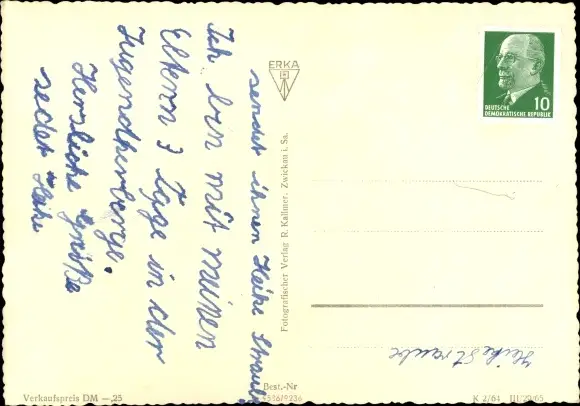 Ich bin mit meinen
Eltern 3 Tage in der
Jugendherberge.
Herzliche Grüße
sedet Heike
sendet ihnen Heike Straube
ERKA
Fotografischer Verlag R. Kallmer, Zwickau i. Sa.
10
DEUTSCHE
DEMOKRATISCHE REPUBLIK
Heike Straube
Verkaufspreis DM —.25
Best.-Nr
9236
K 2/64 III/29/65